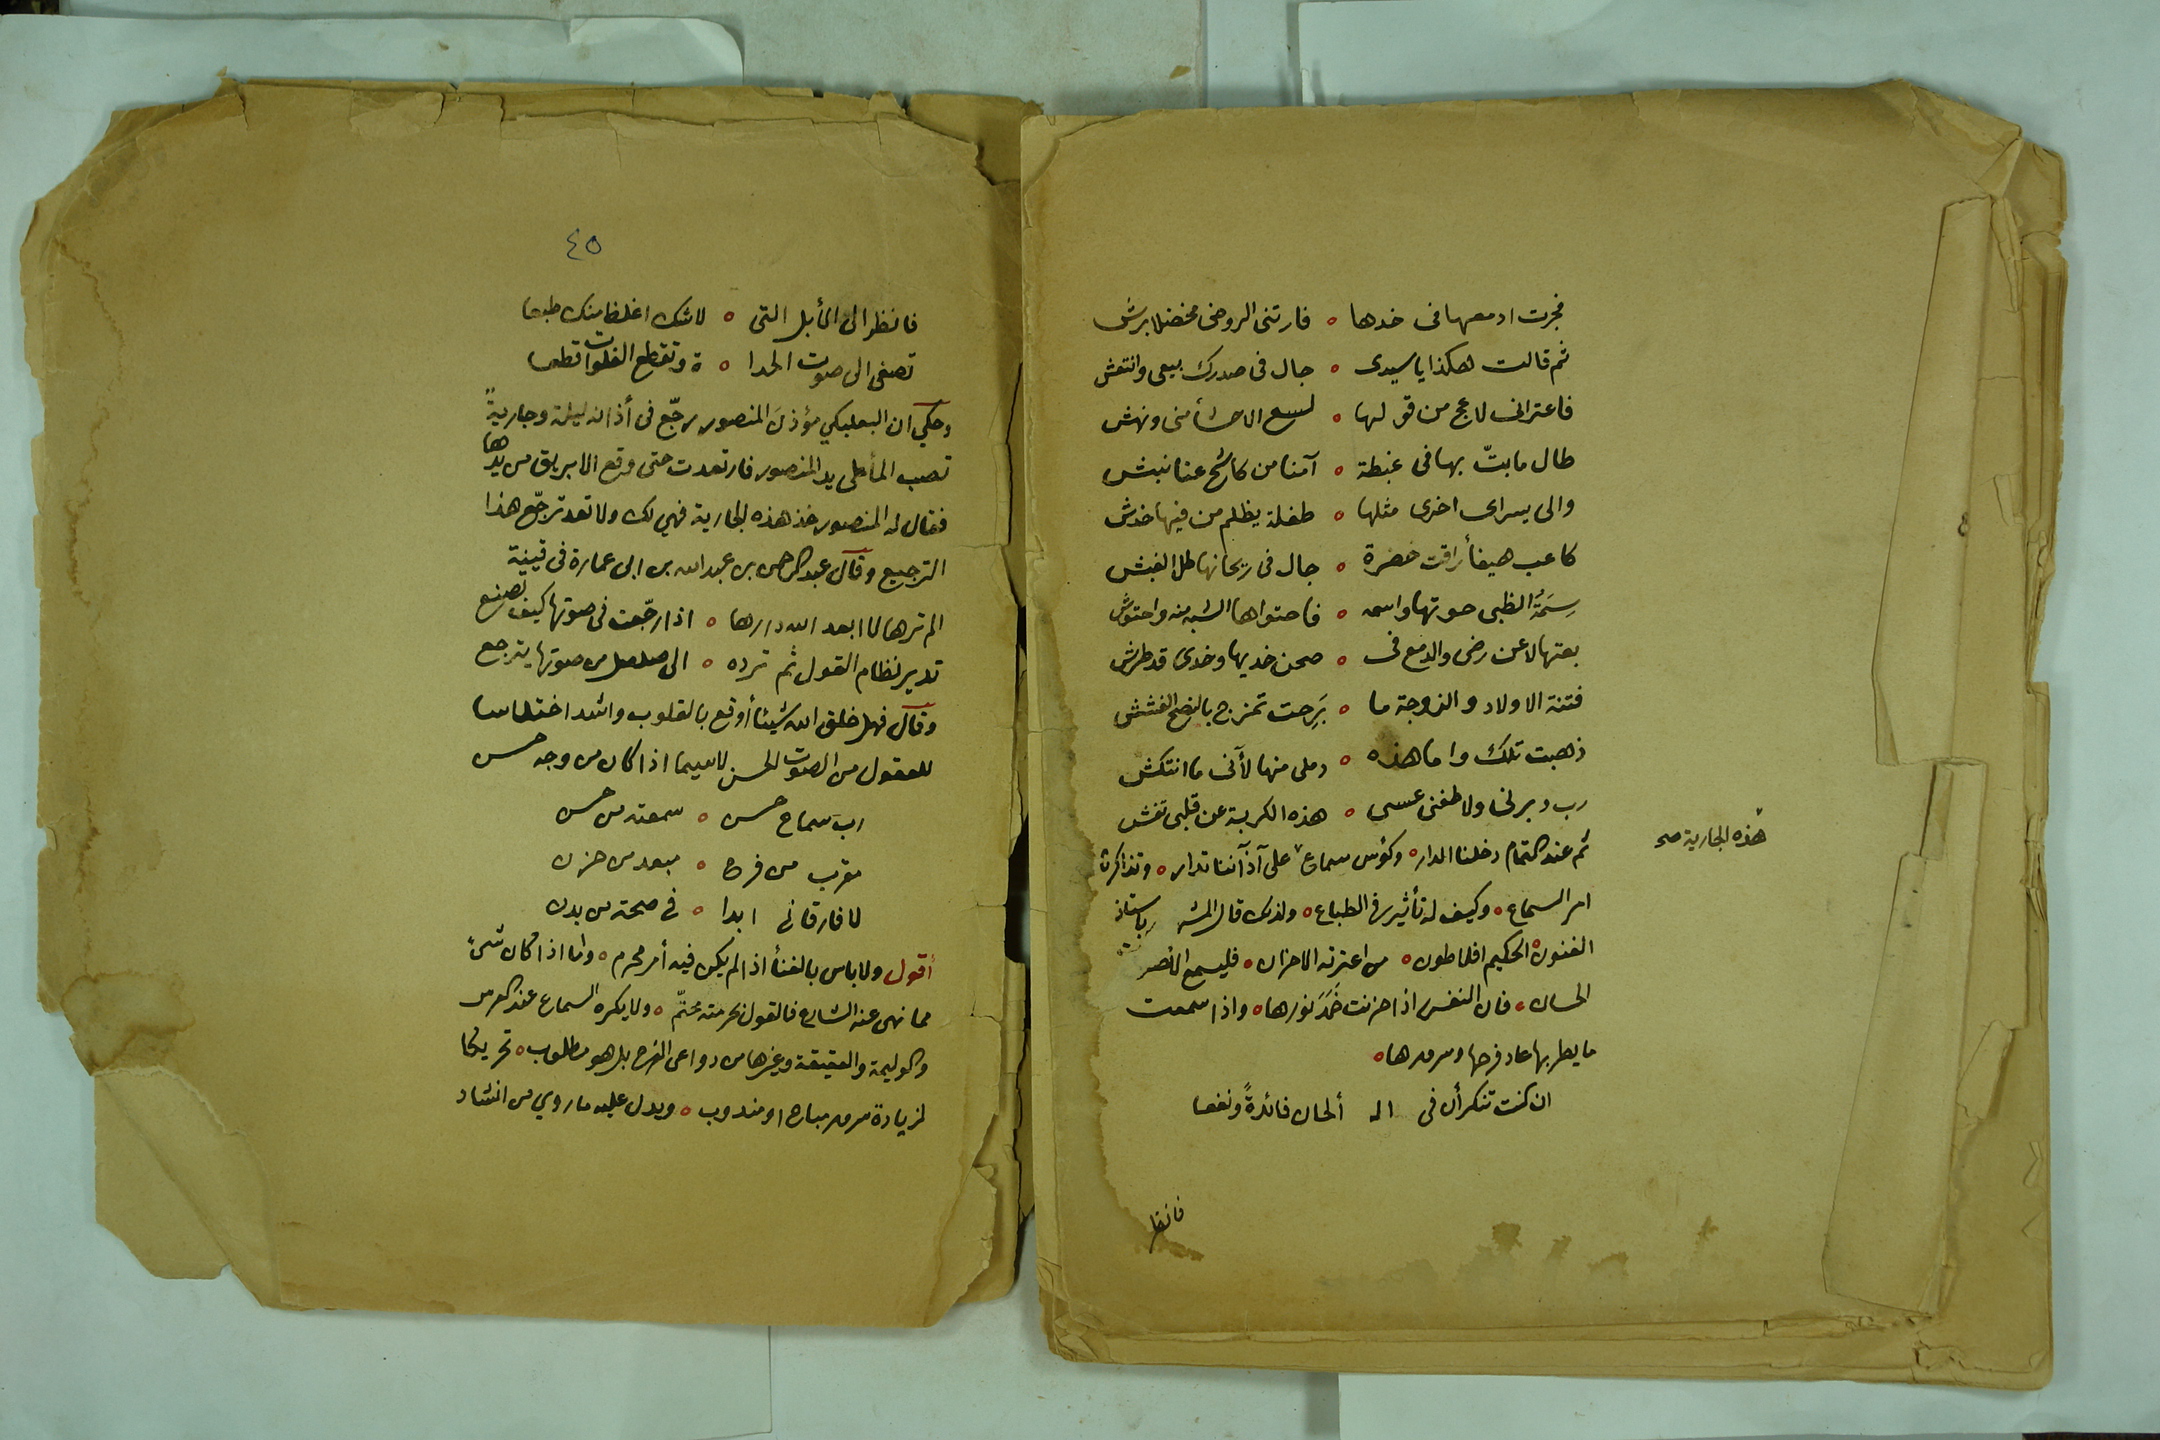 فجرت ادمعها فى خدها ه فارتنى الروض مخضلا برش
ثم قالت هكذا يا سيدى ه جال فى صدرك بيعى وانتعش
فاعترانى لاعج من قولها ه لسع الاحشأ منى ونهش
طال ما بتّ بها فى غبطة ه آمنا من كاشح عنا نبش
والى يسراى اخرى مثلها ه طفلة يظلم من فيها خدش
كاعب هيفأ راقت خضرة ه جال فى ريحانها طل الغبش
سِمَةُ الظبى حوتها واسمه ه فاحتواها الشبه منه واحتوش
بعتها لا عن رضى والدمع فى ه صحن خديها وخدى قد طرش
فتنة الاولاد والزوجة ما ه بَرِحت تمزج بالنصح الغشش
ذهبت تلك واما هذه ه دملى منها لأنى ما انتكش
رب دبر لى ولاطفنى عسى ه هذه الكربة عن قلبى تفش
هذه الجارية صح
ثم عند التمام دخلنا الدار ه وكؤس سماع على آذاننا تدار ه وتذاكرنا
امر السماع ه وكيف له تأثير فى الطباع ه ولذلك قال باستاذ
الفنون الحكيم افلاطون ه من اعترته الاحزان ه فليسمع
الحسان ه فان النفس اذا حزنت خَمَدَ نورها ه واذا سمعت
ما يطربها عاد فرحها وسرورها ه
ان كنت تنكر أن فى الـ ألحان فائدةً ونفعا
فانظر
٤٥
فانظر الى الأبل التى ه لا شك اغلظ منك طبعا
تصغى الى صوت الحدا ه ة وتقطع الفلوات قطعا
وحكي ان البعلبكي مؤذن المنصور رجّع فى أذانه ليلة وجاريةً
تصب المأ على يد المنصور فارتعدت حتى وقع الابريق من يدها
فقال له المنصور خذ هذه الجارية فهي لك ولا تعد ترجّع هذا
الترجيع وقال عبد الرحمن بن عبد الله بن ابى عمارة فى قينة
الم ترها لا ابعد الله دارها ه اذا رجّعت فى صوتها كيف تصنع
تدير نظام القول ثم ترده ه الى صلصل من صوتها يترجع
وقال فهل خلق الله شيئا أوقع بالقلوب واشد اختلاسا
للعقول من الصوت الحسن لاسيما اذا كان من وجه حسن
رب سماع حسن ه سمعته من حسن
مقرب من فرح ه مبعد من حزن
لا فارقانى ابدا ه فى صحة من بدن
أقول ولا باس بالغنأ اذا لم يكن فيه أمر محرم ه واما اذا كان شئ
مما نهى عنه الشارع فالقول بحرمته محتّم ه ولا يكره السماع عند العرس
والوليمة والعقيقة وغيرها من دواعى الفرح بل هو مطلوب ه تحريكا
لزيادة سرور مباح او مندوب ه ويدل عليه ما روي من انشاد